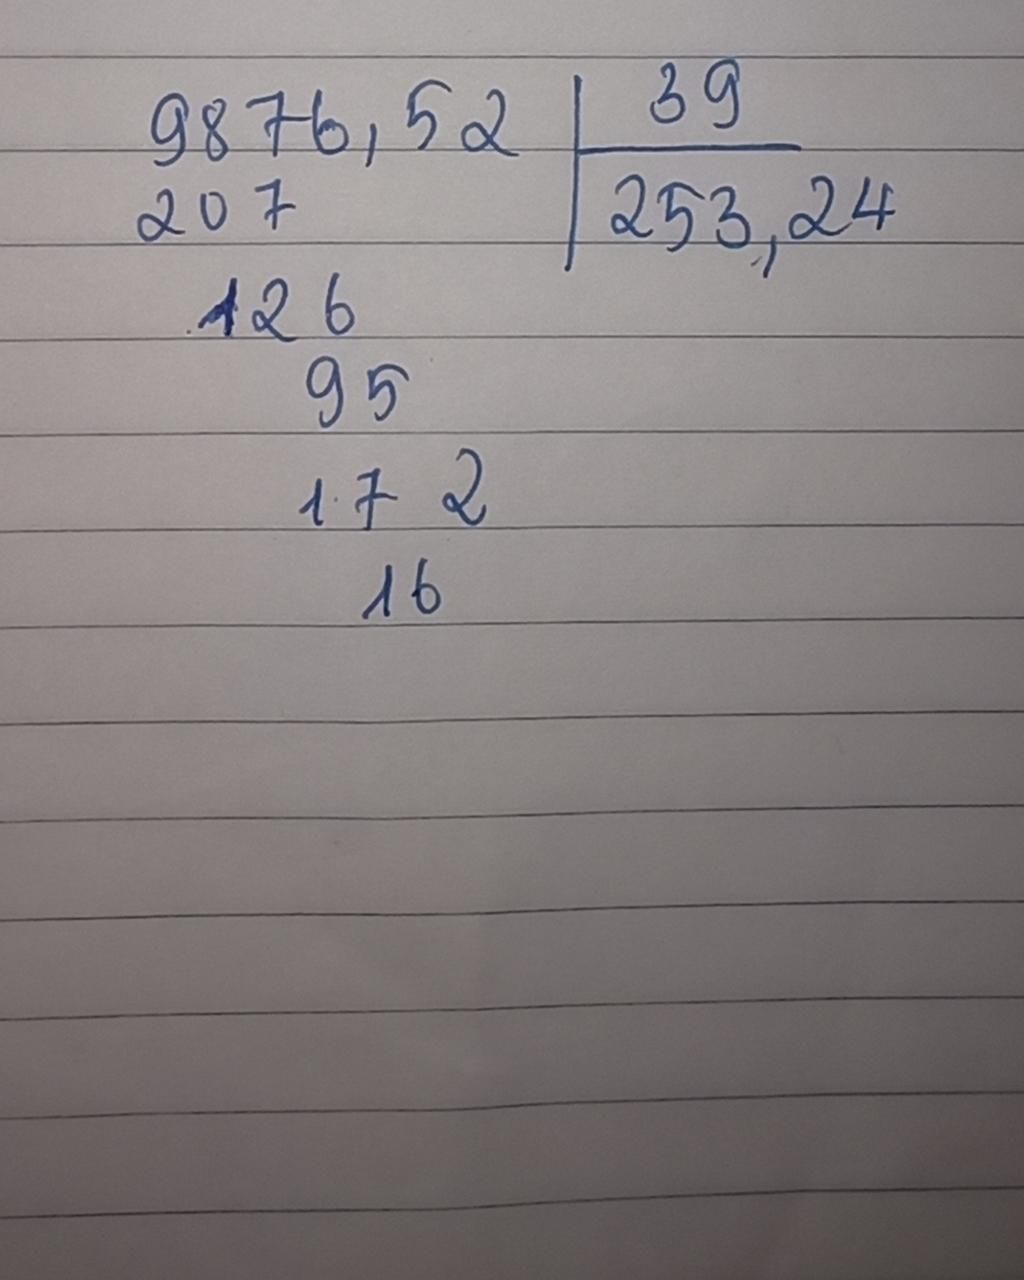 9876,52 39
207 253,24
126
95
172
16